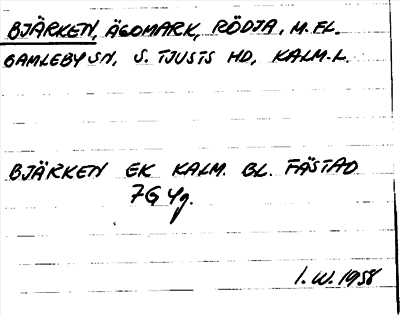 BJÄRKEN, ÄGOMARK, RÖDJA, M.FL.
GAMLEBY SN, S. TJUSTS HD, KALM.L.
BJÄRKEN EK KALM. BL. FÄSTAD
7G 4g.
I.W. 1958